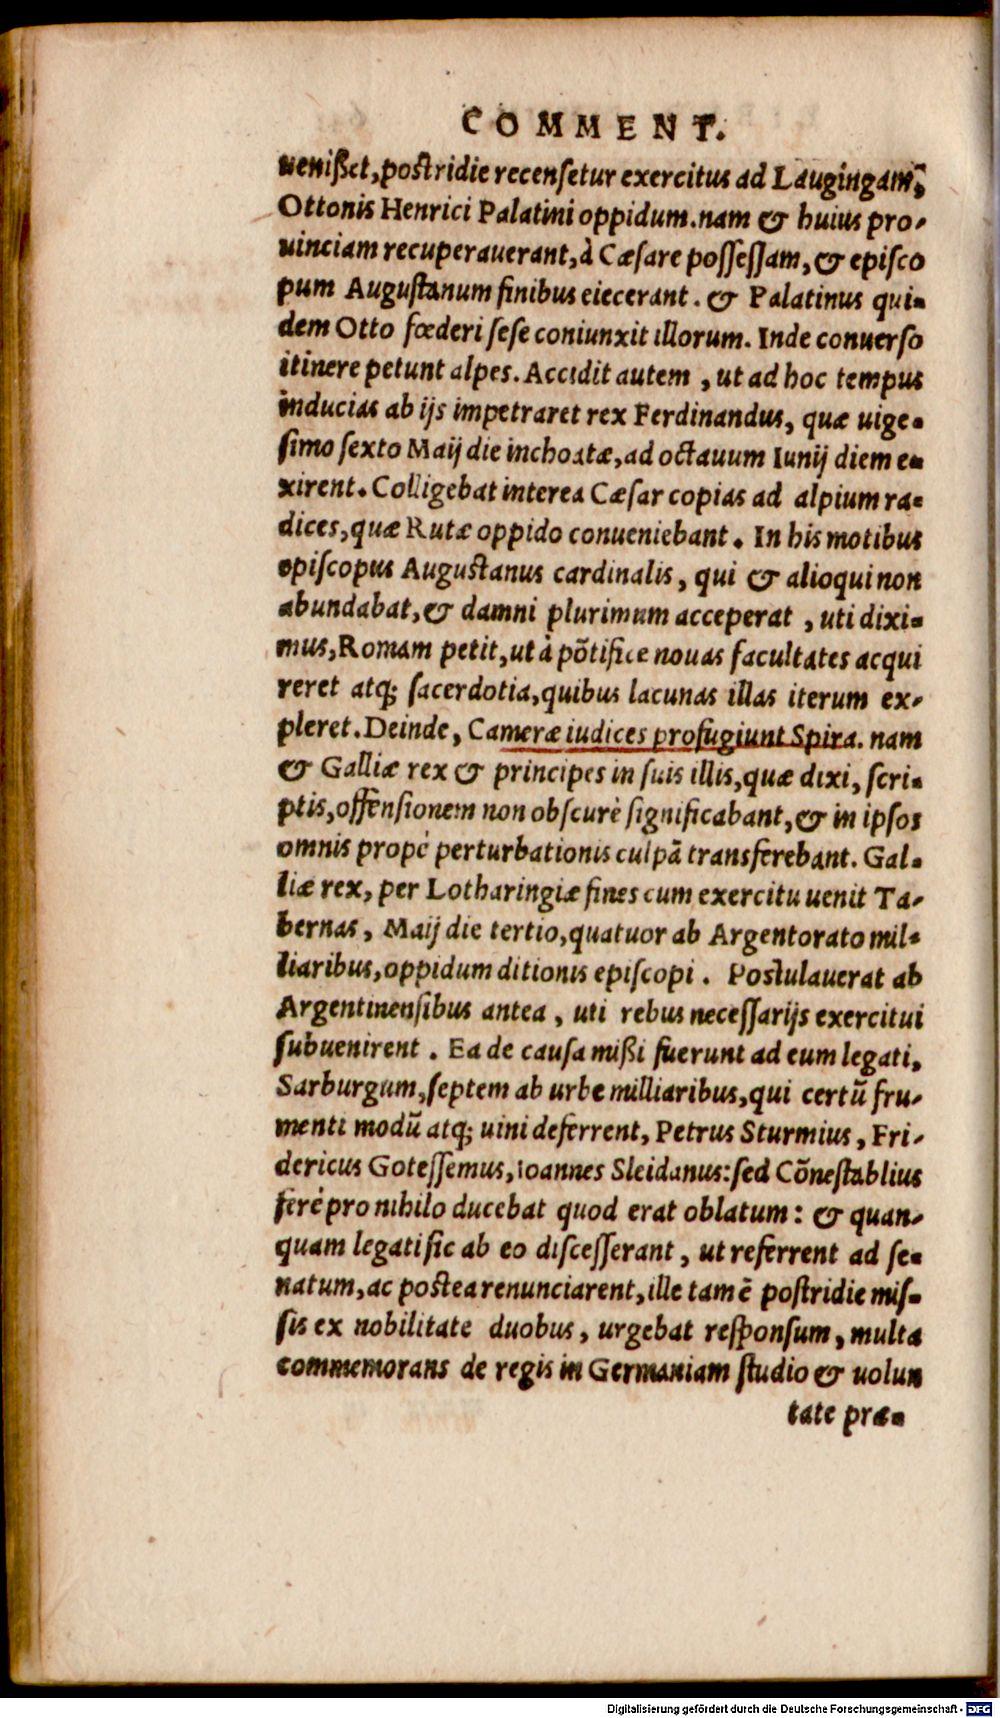 COMMENT.
uenißet, postridie recensetur exercitus ad Laugingam,
Ottonis Henrici Palatini oppidum. nam & huius pro-
uinciam recuperauerant, à Cæsare possessam, & episco
pum Augustanum finibus eiecerant. & Palatinus qui-
dem Otto fœderi sese coniunxit illorum. Inde conuerso
itinere petunt alpes. Accidit autem, ut ad hoc tempus
inducias ab ijs impetraret rex Ferdinandus, quæ uige-
simo sexto Maij die inchoatæ, ad octauum Iunij diem e-
xirent. Colligebat interea Cæsar copias ad alpium ra-
dices, quæ Rutæ oppido conueniebant. In his motibus
episcopus Augustanus cardinalis, qui & alioqui non
abundabat, & damni plurimum acceperat, uti dixi-
mus, Romam petit, ut à põtifice nouas facultates acqui
reret atq; sacerdotia, quibus lacunas illas iterum ex-
pleret. Deinde, Cameræ iudices profugiunt Spira. nam
& Galliæ rex & principes in suis illis, quæ dixi, scri-
ptis, offensionem non obscurè significabant, & in ipsos
omnis propè perturbationis culpã transferebant. Gal-
liæ rex, per Lotharingiæ fines cum exercitu uenit Ta-
bernas, Maij die tertio, quatuor ab Argentorato mil-
liaribus, oppidum ditionis episcopi. Postulauerat ab
Argentinensibus antea, uti rebus necessarijs exercitui
subuenirent. Ea de causa mißi fuerunt ad eum legati,
Sarburgum, septem ab urbe milliaribus, qui certũ fru-
menti modũ atq; uini deferrent, Petrus Sturmius, Fri-
dericus Gotessemus, Ioannes Sleidanus: sed Cõnestablius
ferè pro nihilo ducebat quod erat oblatum: & quan-
quam legati sic ab eo discesserant, ut referrent ad se-
natum, ac postea renunciarent, ille tamẽ postridie mis-
sis ex nobilitate duobus, urgebat responsum, multa
commemorans de regis in Germaniam studio & uolun
tate præ-
Digitalisierung gefördert durch die Deutsche Forschungsgemeinschaft - DFG